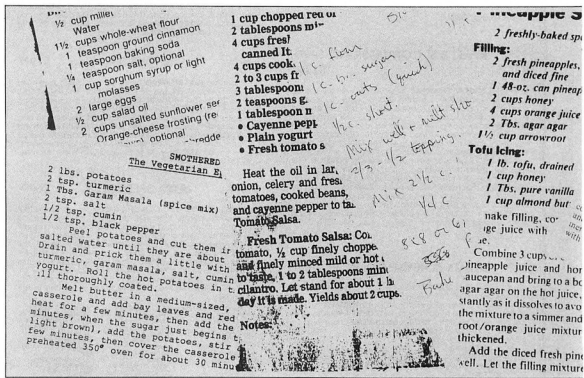 ½ cup millet
Water
1½ cups whole-wheat flour
1 teaspoon ground cinnamon
1 teaspoon baking soda
¼ teaspoon salt, optional
1 cup sorghum syrup or light
molasses
2 large eggs
½ cup salad oil
2 cups unsalted sunflower se
Orange-cheese frosting (re
optional
SMOTHERED
The Vegetarian E
2 lbs. potatoes
2 tsp. turmeric
1 Tbs. Garam Masala (spice mix)
2 tsp. salt
1/2 tsp. cumin
1/2 tsp. black pepper
Peel potatoes and cut them i
salted water until they are about
Drain and prick them a little with
turmeric, garam masala, salt, cumin
yogurt. Roll the hot potatoes in t
ill thoroughly coated.
Melt butter in a medium-sized,
casserole and add bay leaves and red
heat for a few minutes, then add the
minutes, when the sugar just begins t
light brown), add the potatoes, stir
few minutes, then cover the casserole
preheated 350° oven for about 30 minu
1 cup chopped red or
2 tablespoons mi
4 cups fres
canned It
4 cups cook
2 to 3 cups fr
3 tablespoon
2 teaspoons g
1 tablespoon n
• Cayenne pepp
• Plain yogurt
• Fresh tomato s
Heat the oil in lar
onion, celery and fres
tomatoes, cooked beans,
and cayenne pepper to ta
Tomato Salsa.
Fresh Tomato Salsa: Co
tomato, ½ cup finely choppe
and finely minced mild or hot
to taste, 1 to 2 tablespoons min
cilantro. Let stand for about 1 h
day it is made. Yields about 2 cups.
Notes:
1 c. flour
1 c. br. sugar
1 c. oats (quick)
½ c. short
Mix well + melt sho
2/3 - 1/2 topping.
Mix 2½ c.
8x8 or 6
Bake
Pineapple S
2 freshly-baked sp
Filling:
2 fresh pineapples,
and diced fine
1 48-oz. can pineap
2 cups honey
4 cups orange juice
2 Tbs. agar agar
1½ cup arrowroot
Tofu Icing:
1 lb. tofu, drained
1 cup honey
1 Tbs. pure vanilla
1 cup almond but
make filling, co
ge juice with
Combine 3 cups
pineapple juice and hon
aucepan and bring to a bo
agar agar on the hot juice.
stantly as it dissolves to avo
the mixture to a simmer and
root/orange juice mixtur
thickened.
Add the diced fresh pine
well. Let the filling mixture